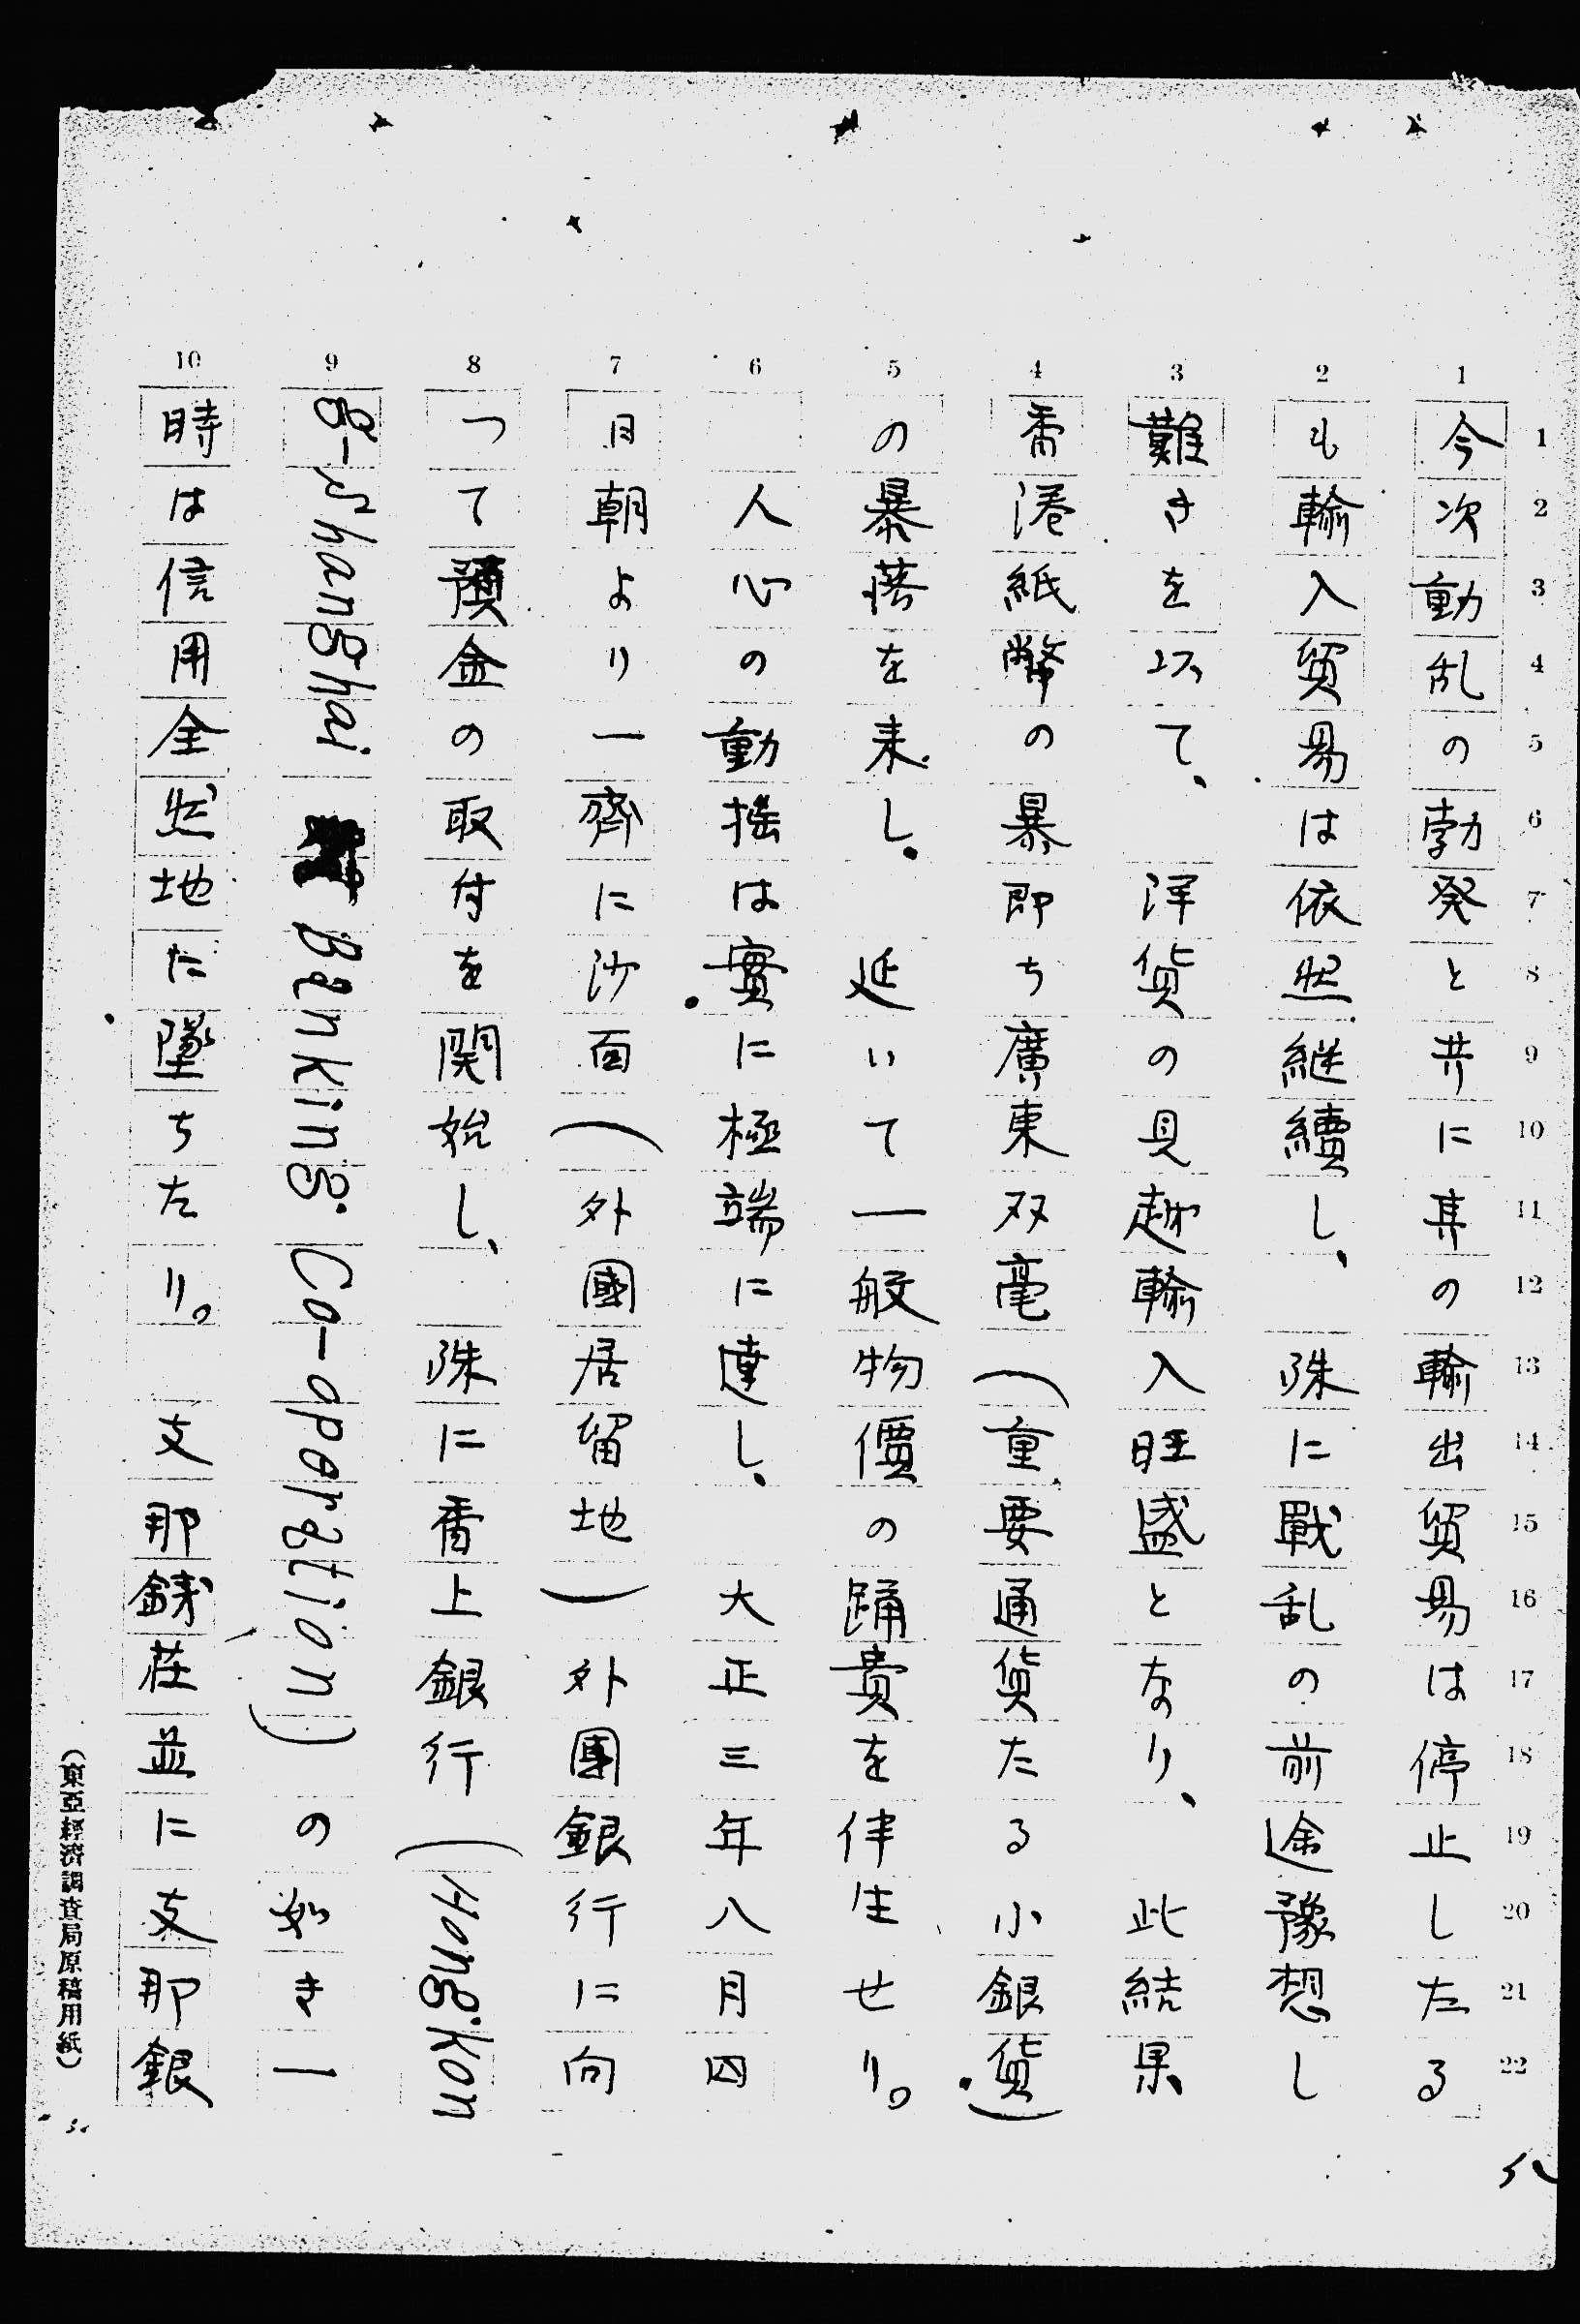 今次動乱の勃発と共に其の輸出貿易は停止したる
も輸入貿易は依然継續し、殊に戰乱の前途豫想し
難きを以て、洋貨の見越輸入旺盛となり、此結果
香港紙幣の暴即ち廣東双毫(重要通貨たる小銀貨)
の暴落を来し、延いて一般物價の踊貴を伴生せり。
人心の動揺は實に極端に達し、大正三年八月四
日朝より一齊に沙面(外國居留地)外國銀行に向
つて預金の取付を開始し、殊に香上銀行(Hongkon
g-Shanghai Banking Co-oporation)の如き一
時は信用全然地に墜ちたり。支那銭荘並に支那銀
(東亞經濟調査局原稿用紙)
1 2 3 4 5 6 7 8 9 10
1 2 3 4 5 6 7 8 9 10 11 12 13 14 15 16 17 18 19 20 21 22